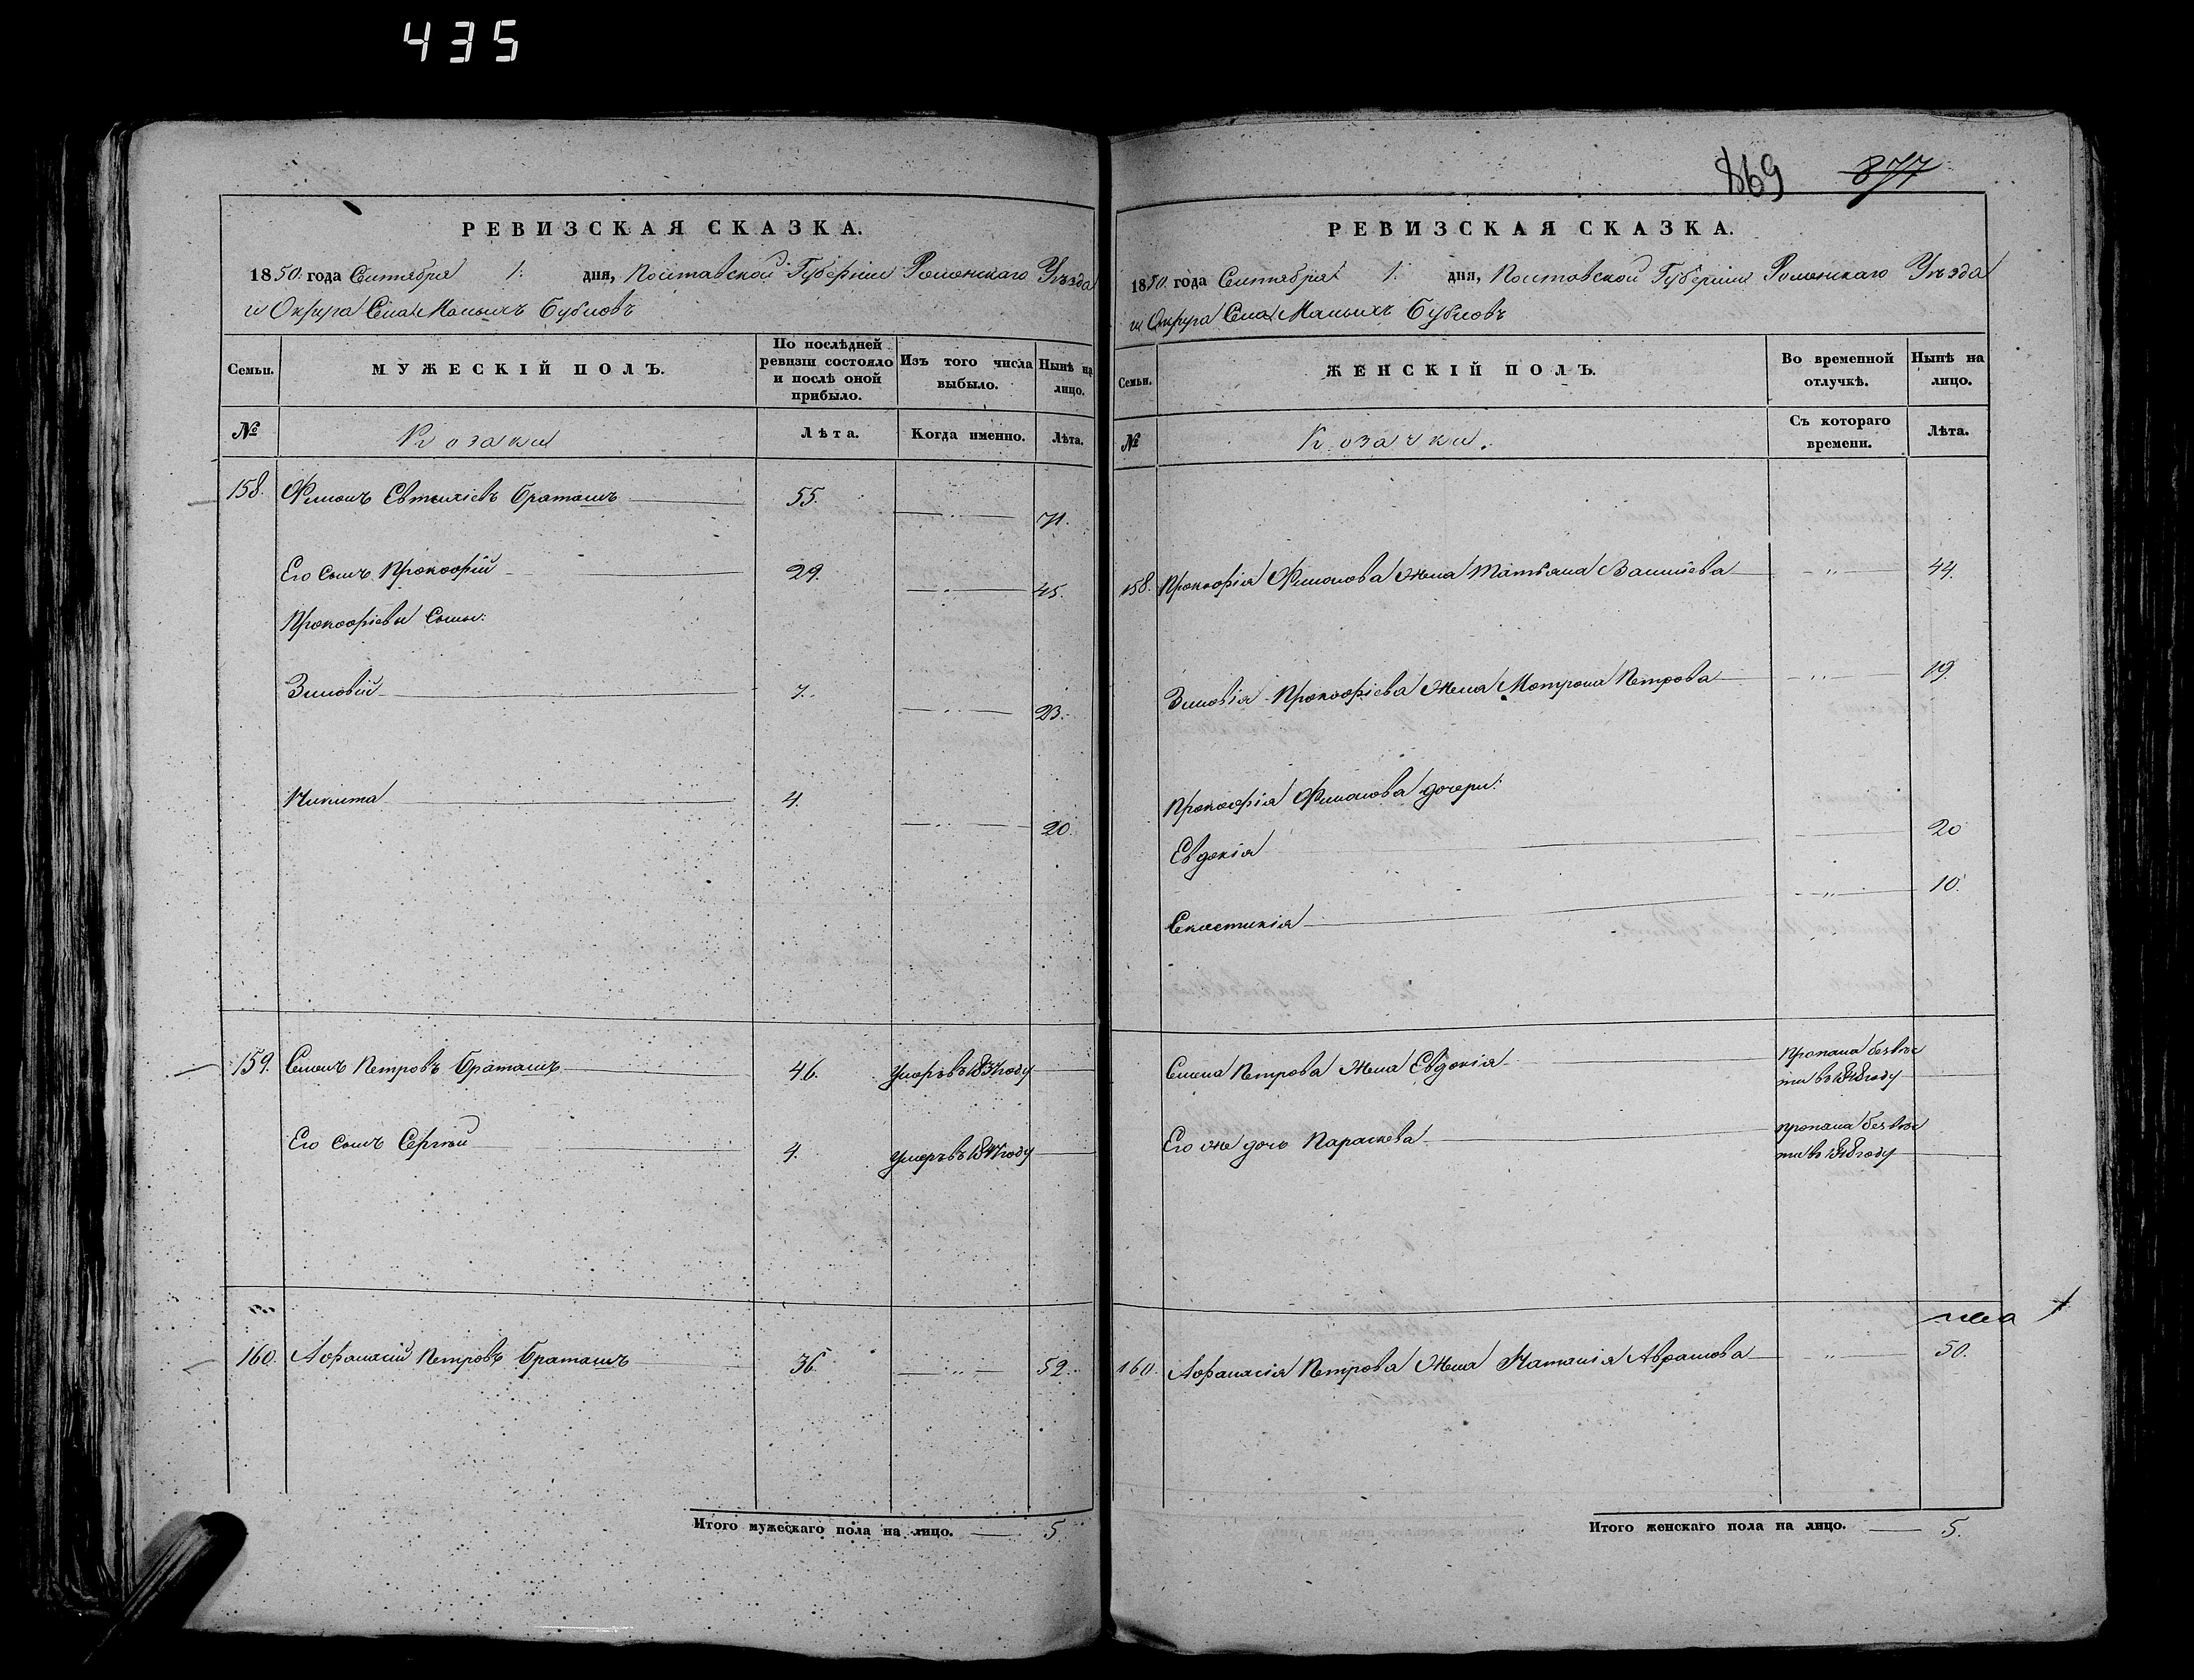 435
РЕВИЗСКАЯ СКАЗКА.
1850. года Сентября 1. дня, Полтавской Губерніи Роменскаго Уѣзда
и Округа Села Малыхъ Бубновъ
Семьи.
МУЖЕСКІЙ ПОЛЪ.
По послѣдней ревизіи состояло и послѣ оной прибыло.
Изъ того числа выбыло.
Нынѣ на лицо.
№
Козаки
Лѣта.
Когда именно.
Лѣта.
158. Филонъ Евтихіевъ Браташъ 55. 71.
Его сынъ Прокофій 29. 45.
Прокофіевы Сыны:
Зиновій 7. 23.
Никита 4. 20.
159. Семенъ Петровъ Браташъ 46. умеръ въ году
Его сынъ Сергѣй 4. умеръ въ году
160. Афанасій Петровъ Браташъ 36. 52.
Итого мужескаго пола на лицо. 5
869 877
РЕВИЗСКАЯ СКАЗКА.
1850. года Сентября 1. дня, Полтавской Губерніи Роменскаго Уѣзда
и Округа Села Малыхъ Бубновъ
Семьи.
ЖЕНСКІЙ ПОЛЪ.
Во временной отлучкѣ.
Нынѣ на лицо.
№
Козачки.
Съ котораго времени.
Лѣта.
158. Прокофія Филонова жена Татьяна Василіева 44.
Зиновія Прокофіева жена Мотрона Петрова 19.
Прокофія Филонова дочери:
Евдокія 20
10.
Семена Петрова жена Евдокія пропала безвѣс
ти въ году
Его же дочь Параскева пропала безвѣс
ти въ году
160. Афанасія Петрова жена Наталія Аврамова 50.
Итого женскаго пола на лицо. 5.